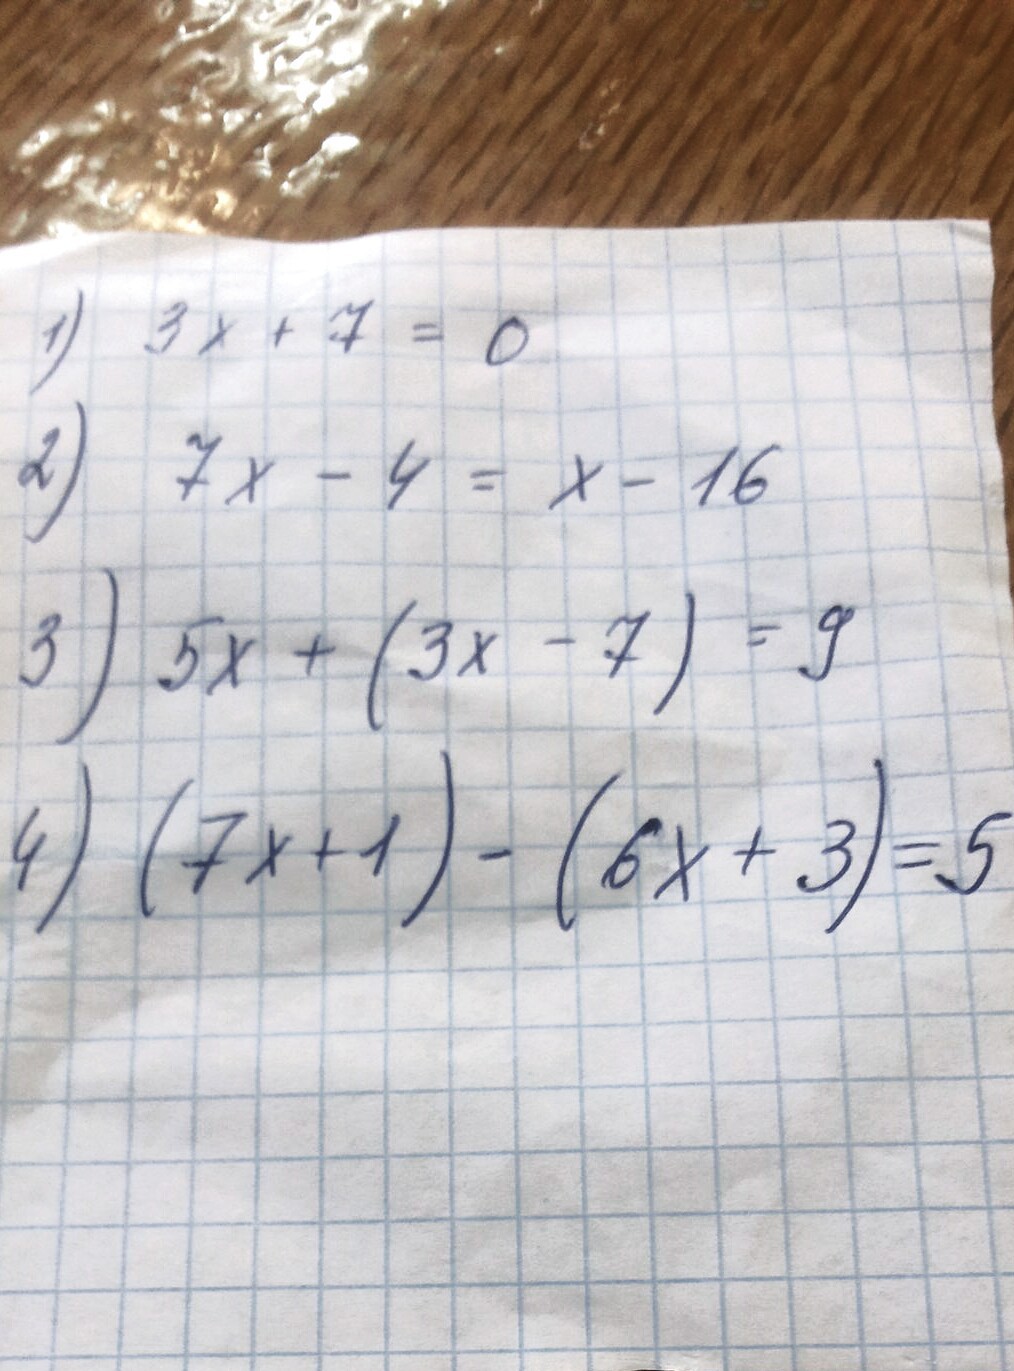 1) 3x + 7 = 0
2) 7x - 4 = x - 16
3) 5x + (3x - 7) = 9
4) (7x + 1) - (6x + 3) = 5